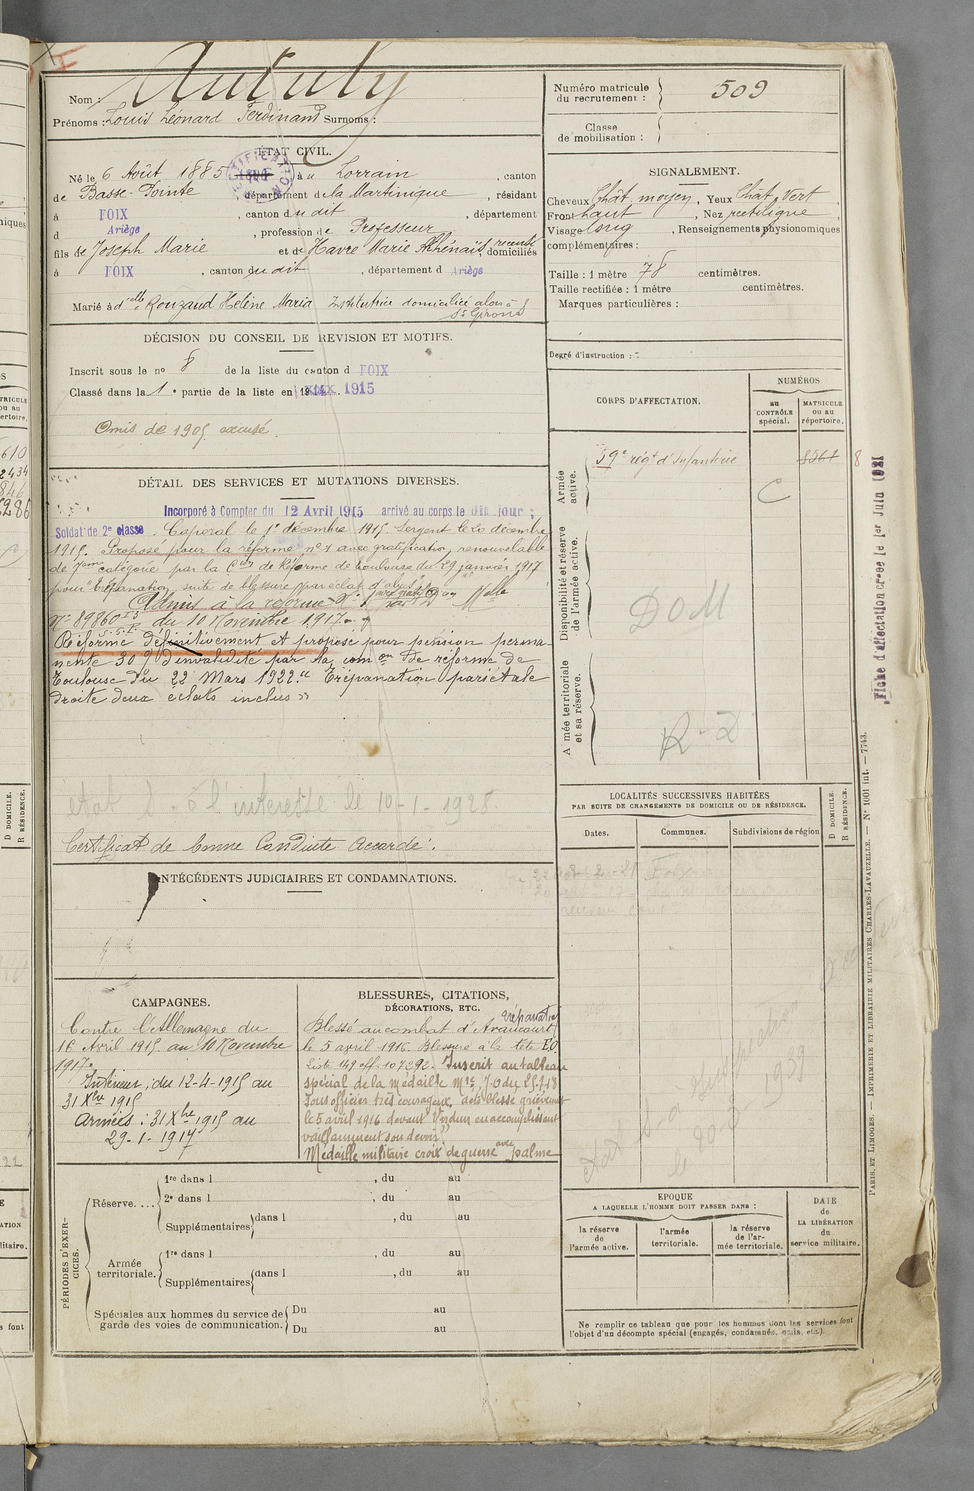 Nom : Autuly
Prénoms : Louis Léonard Ferdinand Surnoms :
ÉTAT CIVIL.
Né le 6 Août 1885, au Lorrain, canton
de Basse-Pointe, département de la Martinique, résidant
à FOIX, canton du dit, département
d Ariège, profession de Professeur
fils de Joseph Marie et de Havre Marie Athénaïs, domiciliés
à FOIX, canton du dit, département d Ariège
Marié à dlle Rouzaud Hélène Maria Institutrice domiciliée alors à
St Girons
DÉCISION DU CONSEIL DE REVISION ET MOTIFS.
Inscrit sous le no 8 de la liste du canton d FOIX
Classé dans la 1e partie de la liste en 1915
Omis de 1905 excusé.
DÉTAIL DES SERVICES ET MUTATIONS DIVERSES.
Incorporé à Compter du 12 Avril 1915 arrivé au corps le dit jour ;
Soldat de 2e classe. Caporal le 1er décembre 1915. Sergent le 20 décembre
1915. Proposé pour la réforme no 1 avec gratification renouvelable
de 7eme catégorie par la Con de Réforme de Toulouse du 29 janvier 1917
pour Trépanation, suite de blessure par éclat d'obus.
Admis à la réforme No 1
No 89860 du 10 Novembre 1917
Réformé définitivement et proposé pour pension perma-
nente 30 % d'invalidité par la comon de réforme de
Toulouse du 22 Mars 1922. "Trépanation pariétale
droite deux éclats inclus"
à l'intéressé le 10-1-1928
Certificat de bonne Conduite Accordé.
ANTÉCÉDENTS JUDICIAIRES ET CONDAMNATIONS.
CAMPAGNES.
Contre l'Allemagne du
16 Avril 1915 au 10 Novembre
1917.
Intérieur ; du 12-4-1915 au
31 Xbre 1915
Armées : 31 Xbre 1915 au
29-1-1917
BLESSURES, CITATIONS,
DÉCORATIONS, ETC.
Trépanation
Blessé au combat d'Avaucourt
le 5 avril 1916. Blessure à la tête E.O.
Liste 149 off. 107292. Inscrit au tableau
spécial de la médaille Mre J.O du
Sous officier très courageux, a été blessé grièvement
le 5 avril 1916 devant Verdun en accomplissant
vaillamment son devoir"
Médaille militaire croix de guerre avec palme
PÉRIODES D'EXER-
CICES.
Réserve....
1re dans l , du au
2e dans l , du au
Supplémentaires dans l , du au
Armée
territoriale.
1re dans l , du au
Supplémentaires dans l , du au
Spéciales aux hommes du service de
garde des voies de communication.
Du au
Du au
Numéro matricule
du recrutement : 509
Classe
de mobilisation :
SIGNALEMENT.
Cheveux Chât. moyen, Yeux Chât. Vert
Front haut, Nez rectiligne
Visage long, Renseignements physionomiques
complémentaires :
Taille : 1 mètre 78 centimètres.
Taille rectifiée : 1 mètre centimètres.
Marques particulières :
Degré d'instruction :
CORPS D'AFFECTATION.
NUMÉROS
AU
CONTRÔLE
spécial.
MATRICULE
OU AU
répertoire.
Armée
active.
59e régt d'Infanterie
C
Disponibilité et réserve
de l'armée active.
DOM
Armée territoriale
et sa réserve.
R-D
Fiche d'affectation créée le 1er Juin 1921
LOCALITÉS SUCCESSIVES HABITÉES
PAR SUITE DE CHANGEMENTS DE DOMICILE OU DE RÉSIDENCE.
Dates.
Communes.
Subdivisions de région
D DOMICILE.
R RÉSIDENCE.
Foix
1939
EPOQUE
A LAQUELLE L'HOMME DOIT PASSER DANS :
la réserve
de
l'armée active.
l'armée
territoriale.
la réserve
de l'ar-
mée territoriale.
DATE
de
LA LIBÉRATION
du
service militaire.
Ne remplir ce tableau que pour les hommes dont les services font
l'objet d'un décompte spécial (engagés, condamnés, omis, etc.)
PARIS ET LIMOGES. — IMPRIMERIE ET LIBRAIRIE MILITAIRES CHARLES-LAVAUZELLE. — No 1001 int. — 7743.